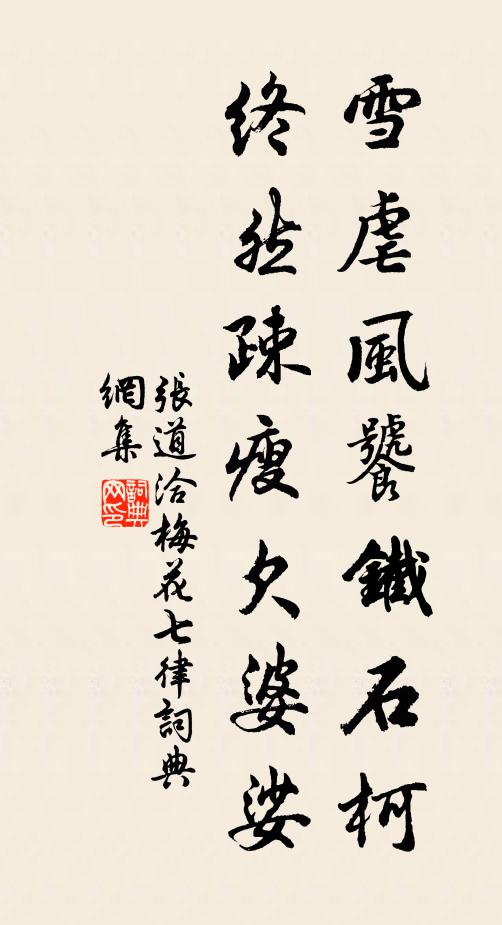 雪虐風饕鐵石柯
終然疎瘦欠婆娑
張道洽梅花七律詞典
網集
詞典
网印